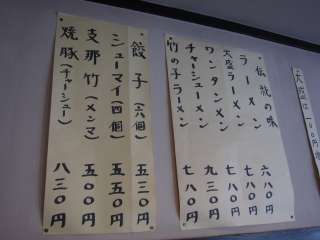 伝龍の味
ラーメン 六八〇円
大盛ラーメン 七八〇円
ワンタンメン 七八〇円
チャーシューメン 九三〇円
竹の子ラーメン 七八〇円
餃子(六個) 五三〇円
シューマイ(四個) 五五〇円
支那竹(メンマ) 五〇〇円
焼豚(チャーシュー) 八三〇円
大盛は一〇〇円増